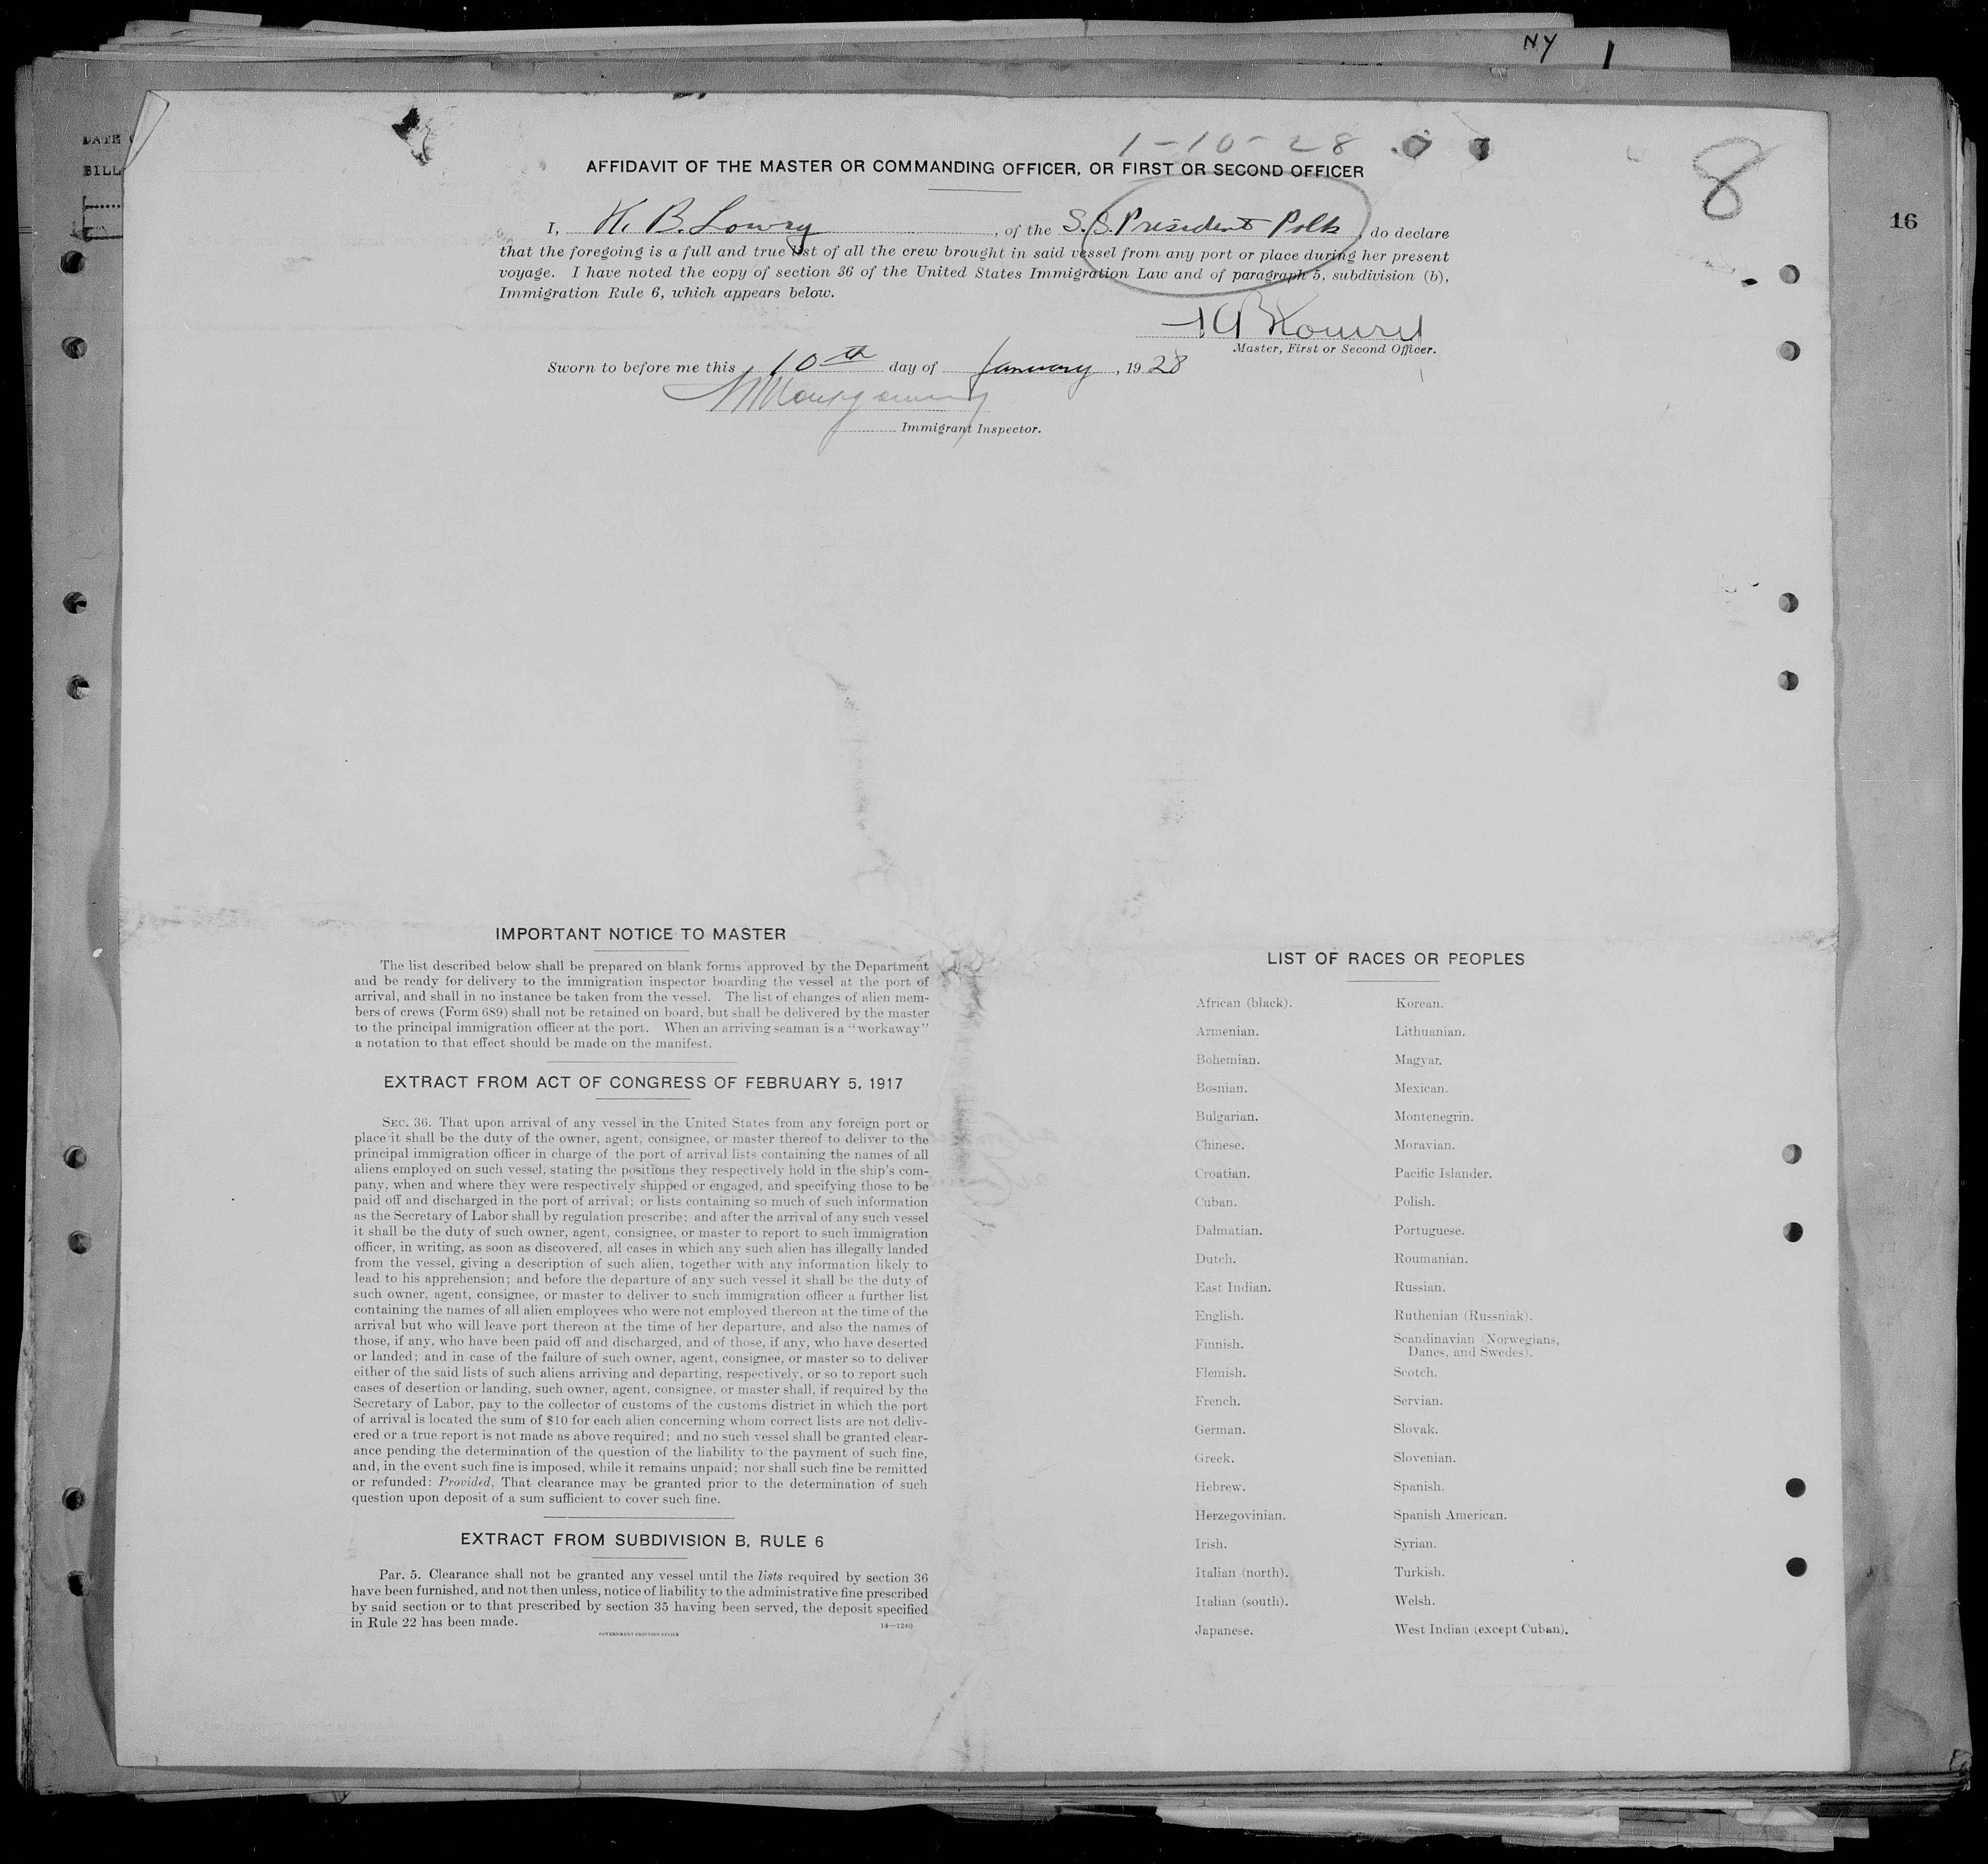 NY
DATE
BILL
1-10-28
8
16
AFFIDAVIT OF THE MASTER OR COMMANDING OFFICER, OR FIRST OR SECOND OFFICER
I, H. B. Lowry, of the S.S. President Polk, do declare
that the foregoing is a full and true list of all the crew brought in said vessel from any port or place during her present
voyage. I have noted the copy of section 36 of the United States Immigration Law and of paragraph 5, subdivision (b),
Immigration Rule 6, which appears below.
Master, First or Second Officer.
Sworn to before me this 10th day of January, 1928
Montgomery
Immigrant Inspector.
IMPORTANT NOTICE TO MASTER
The list described below shall be prepared on blank forms approved by the Department
and be ready for delivery to the immigration inspector boarding the vessel at the port of
arrival, and shall in no instance be taken from the vessel. The list of changes of alien mem-
bers of crews (Form 689) shall not be retained on board, but shall be delivered by the master
to the principal immigration officer at the port. When an arriving seaman is a "workaway"
a notation to that effect should be made on the manifest.
EXTRACT FROM ACT OF CONGRESS OF FEBRUARY 5, 1917
SEC. 36. That upon arrival of any vessel in the United States from any foreign port or
place it shall be the duty of the owner, agent, consignee, or master thereof to deliver to the
principal immigration officer in charge of the port of arrival lists containing the names of all
aliens employed on such vessel, stating the positions they respectively hold in the ship's com-
pany, when and where they were respectively shipped or engaged, and specifying those to be
paid off and discharged in the port of arrival; or lists containing so much of such information
as the Secretary of Labor shall by regulation prescribe; and after the arrival of any such vessel
it shall be the duty of such owner, agent, consignee, or master to report to such immigration
officer, in writing, as soon as discovered, all cases in which any such alien has illegally landed
from the vessel, giving a description of such alien, together with any information likely to
lead to his apprehension; and before the departure of any such vessel it shall be the duty of
such owner, agent, consignee, or master to deliver to such immigration officer a further list
containing the names of all alien employees who were not employed thereon at the time of the
arrival but who will leave port thereon at the time of her departure, and also the names of
those, if any, who have been paid off and discharged, and of those, if any, who have deserted
or landed; and in case of the failure of such owner, agent, consignee, or master so to deliver
either of the said lists of such aliens arriving and departing, respectively, or so to report such
cases of desertion or landing, such owner, agent, consignee, or master shall, if required by the
Secretary of Labor, pay to the collector of customs of the customs district in which the port
of arrival is located the sum of $10 for each alien concerning whom correct lists are not deliv-
ered or a true report is not made as above required; and no such vessel shall be granted clear-
ance pending the determination of the question of the liability to the payment of such fine,
and, in the event such fine is imposed, while it remains unpaid; nor shall such fine be remitted
or refunded: Provided, That clearance may be granted prior to the determination of such
question upon deposit of a sum sufficient to cover such fine.
EXTRACT FROM SUBDIVISION B, RULE 6
Par. 5. Clearance shall not be granted any vessel until the lists required by section 36
have been furnished, and not then unless, notice of liability to the administrative fine prescribed
by said section or to that prescribed by section 35 having been served, the deposit specified
in Rule 22 has been made.
14—1240
GOVERNMENT PRINTING OFFICE
LIST OF RACES OR PEOPLES
African (black).
Armenian.
Bohemian.
Bosnian.
Bulgarian.
Chinese.
Croatian.
Cuban.
Dalmatian.
Dutch.
East Indian.
English.
Finnish.
Flemish.
French.
German.
Greek.
Hebrew.
Herzegovinian.
Irish.
Italian (north).
Italian (south).
Japanese.
Korean.
Lithuanian.
Magyar.
Mexican.
Montenegrin.
Moravian.
Pacific Islander.
Polish.
Portuguese.
Roumanian.
Russian.
Ruthenian (Russniak).
Scandinavian (Norwegians,
Danes, and Swedes).
Scotch.
Servian.
Slovak.
Slovenian.
Spanish.
Spanish American.
Syrian.
Turkish.
Welsh.
West Indian (except Cuban).